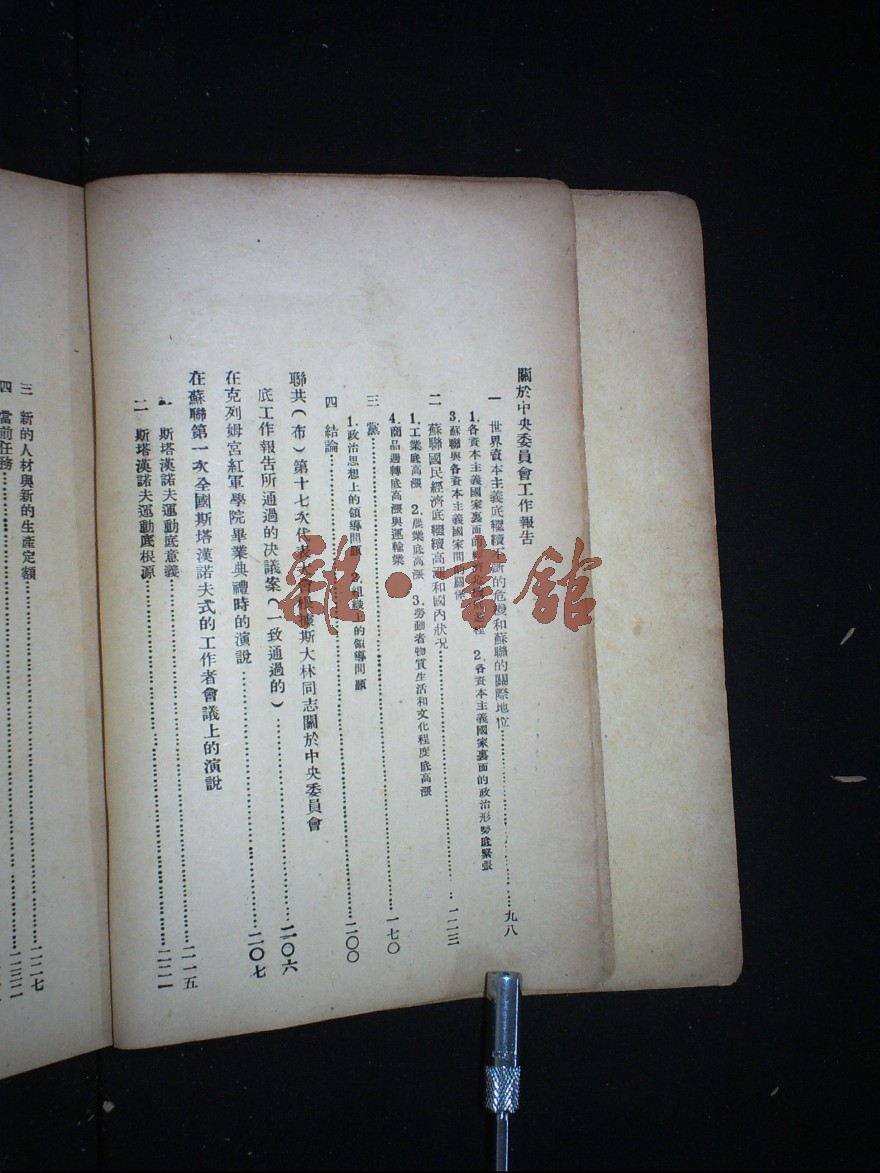 關於中央委員會工作報告
一 世界資本主義底繼續不斷的危機和蘇聯的國際地位……九八
1.各資本主義國家裏面的經 2.各資本主義國家裏面的政治形勢底緊張
3.蘇聯與各資本主義國家間的關係
二 蘇聯國民經濟底繼續高漲和國內狀况……一二三
1.工業底高漲 2.農業底高漲 3.勞動者物質生活和文化程度底高漲
4.商品週轉底高漲與運輸業
三 黨……一七〇
1.政治思想上的領導問題 2.組織上的領導問題
四 結論……二〇〇
聯共(布)第十七次代表大會根據斯大林同志關於中央委員會
底工作報告所通過的决議案(一致通過的)……二〇六
在克列姆宮紅軍學院畢業典禮時的演說……二〇七
在蘇聯第一次全國斯塔漢諾夫式的工作者會議上的演說
一 斯塔漢諾夫運動底意義……二一五
二 斯塔漢諾夫運動底根源……二二一
三 新的人材與新的生產定額……二二七
四 當前任務……
雜·書館